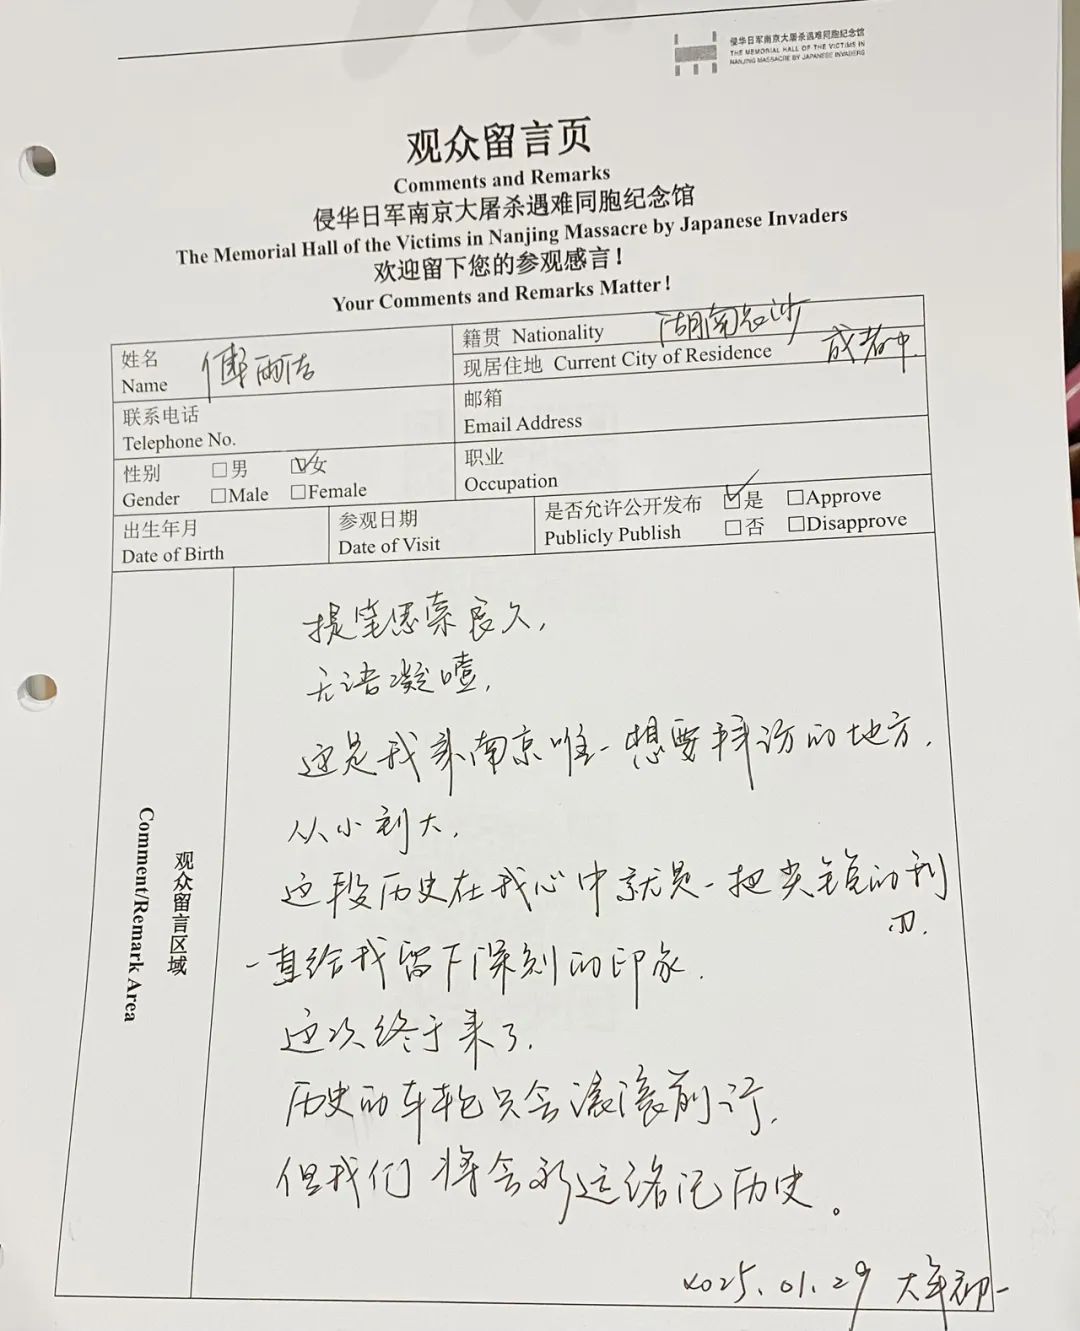 侵华日军南京大屠杀遇难同胞纪念馆
THE MEMORIAL HALL OF THE VICTIMS IN
NANJING MASSACRE BY JAPANESE INVADERS
观众留言页
Comments and Remarks
侵华日军南京大屠杀遇难同胞纪念馆
The Memorial Hall of the Victims in Nanjing Massacre by Japanese Invaders
欢迎留下您的参观感言！
Your Comments and Remarks Matter！
姓名
Name 雨洁
籍贯 Nationality 湖南长沙
现居住地 Current City of Residence 成都中
联系电话
Telephone No.
邮箱
Email Address
性别 □男 ☑女
Gender □Male □Female
职业
Occupation
出生年月
Date of Birth
参观日期
Date of Visit
是否允许公开发布 ☑是 □Approve
Publicly Publish □否 □Disapprove
观众留言区域
Comment/Remark Area
提笔思索良久，
无语凝噎，
这是我来南京唯一想要拜访的地方，
从小到大，
这段历史在我心中就是一把尖锐的利
刃，
一直给我留下深刻的印象．
这次终于来了，
历史的车轮只会滚滚前行，
但我们将会永远铭记历史。
2025.01.29 大年初一